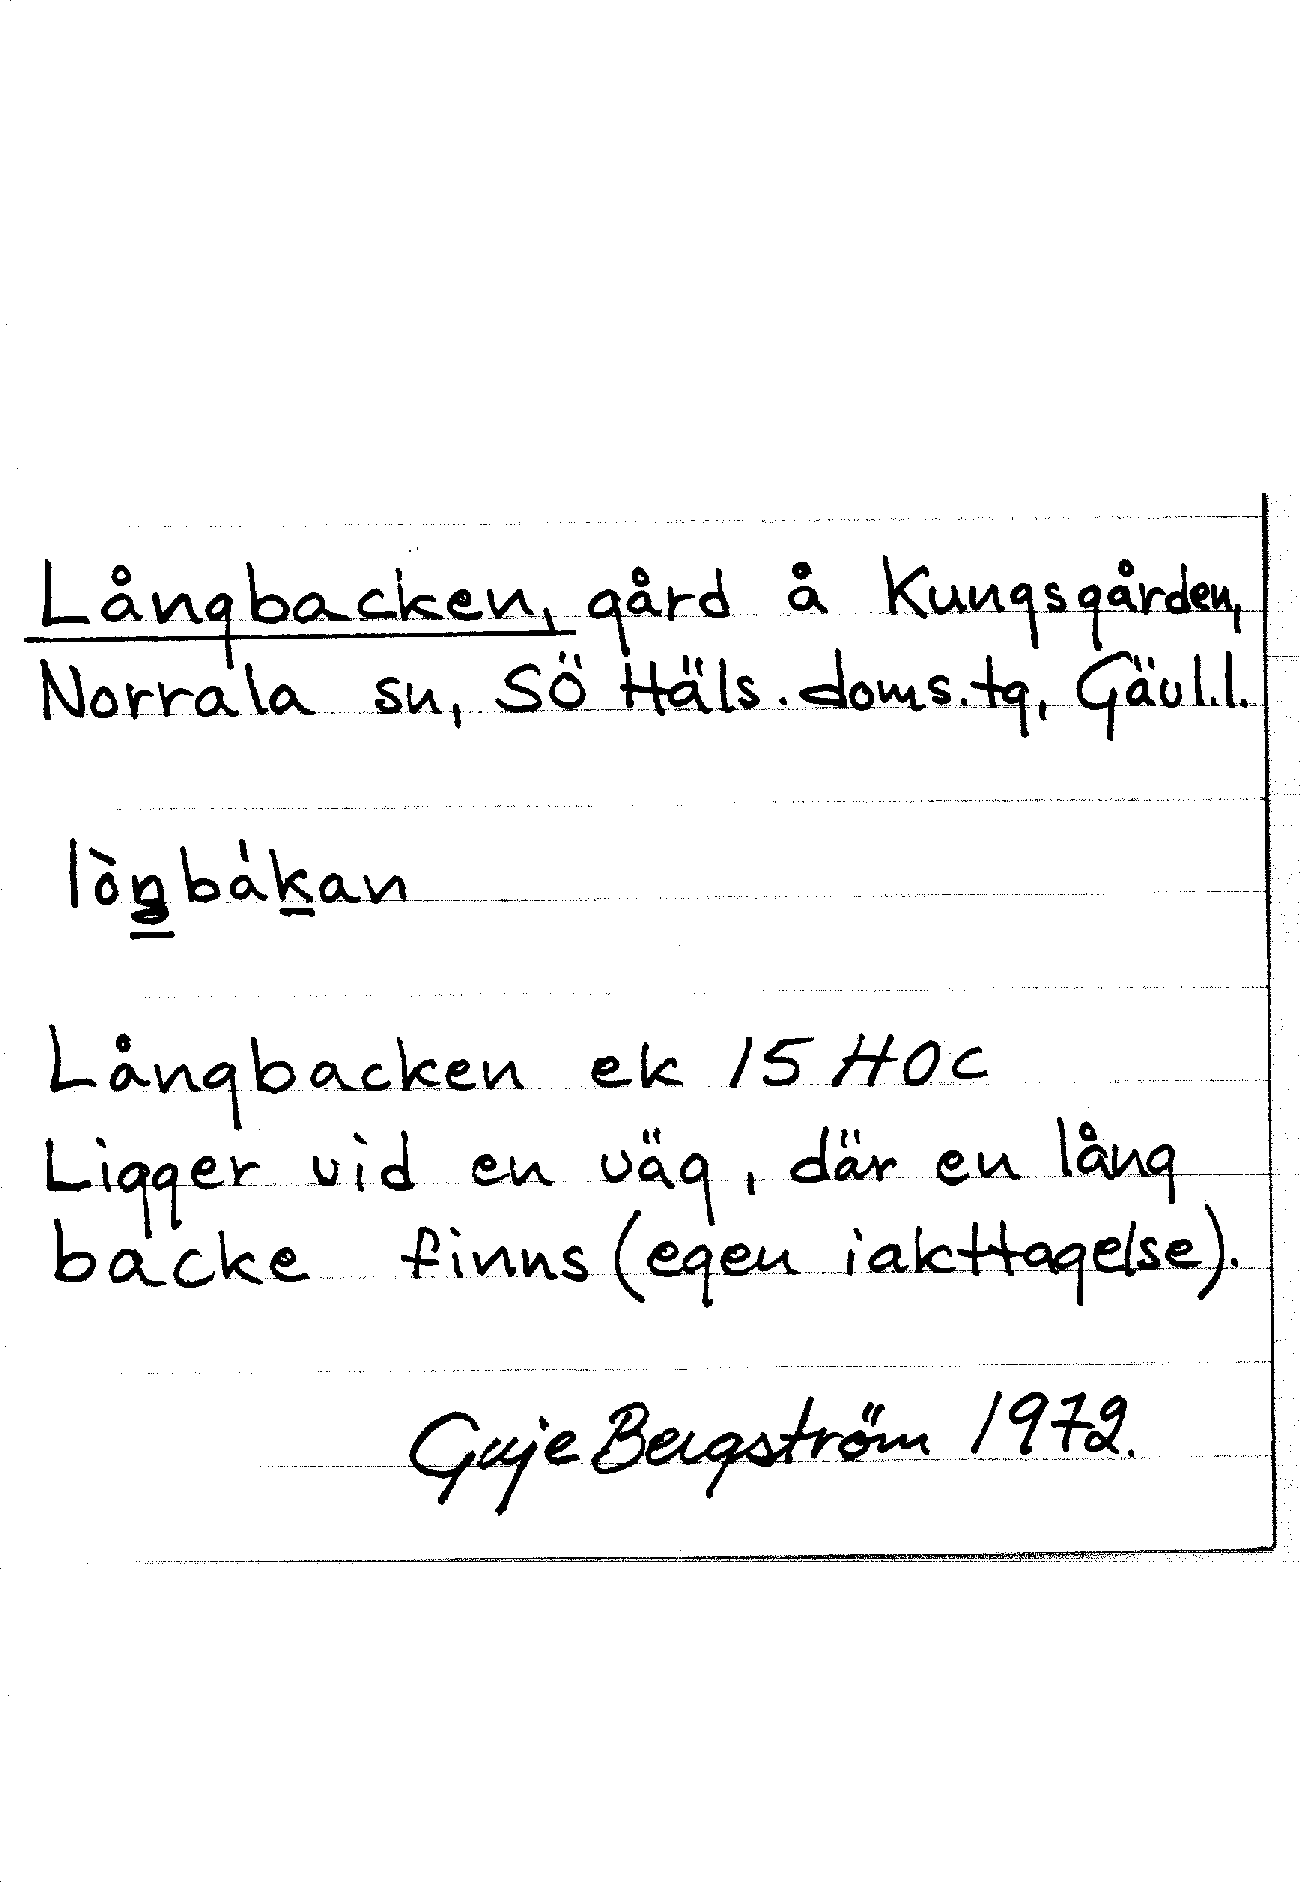 Långbacken, gård å Kungsgården,
Norrala sn, SÖ Häls. doms.tg, Gävl.l.
lòŋbákan
Långbacken ek 15 H0c
Ligger vid en väg, där en lång
backe finns (egen iakttagelse).
Guje Bergström 1972.